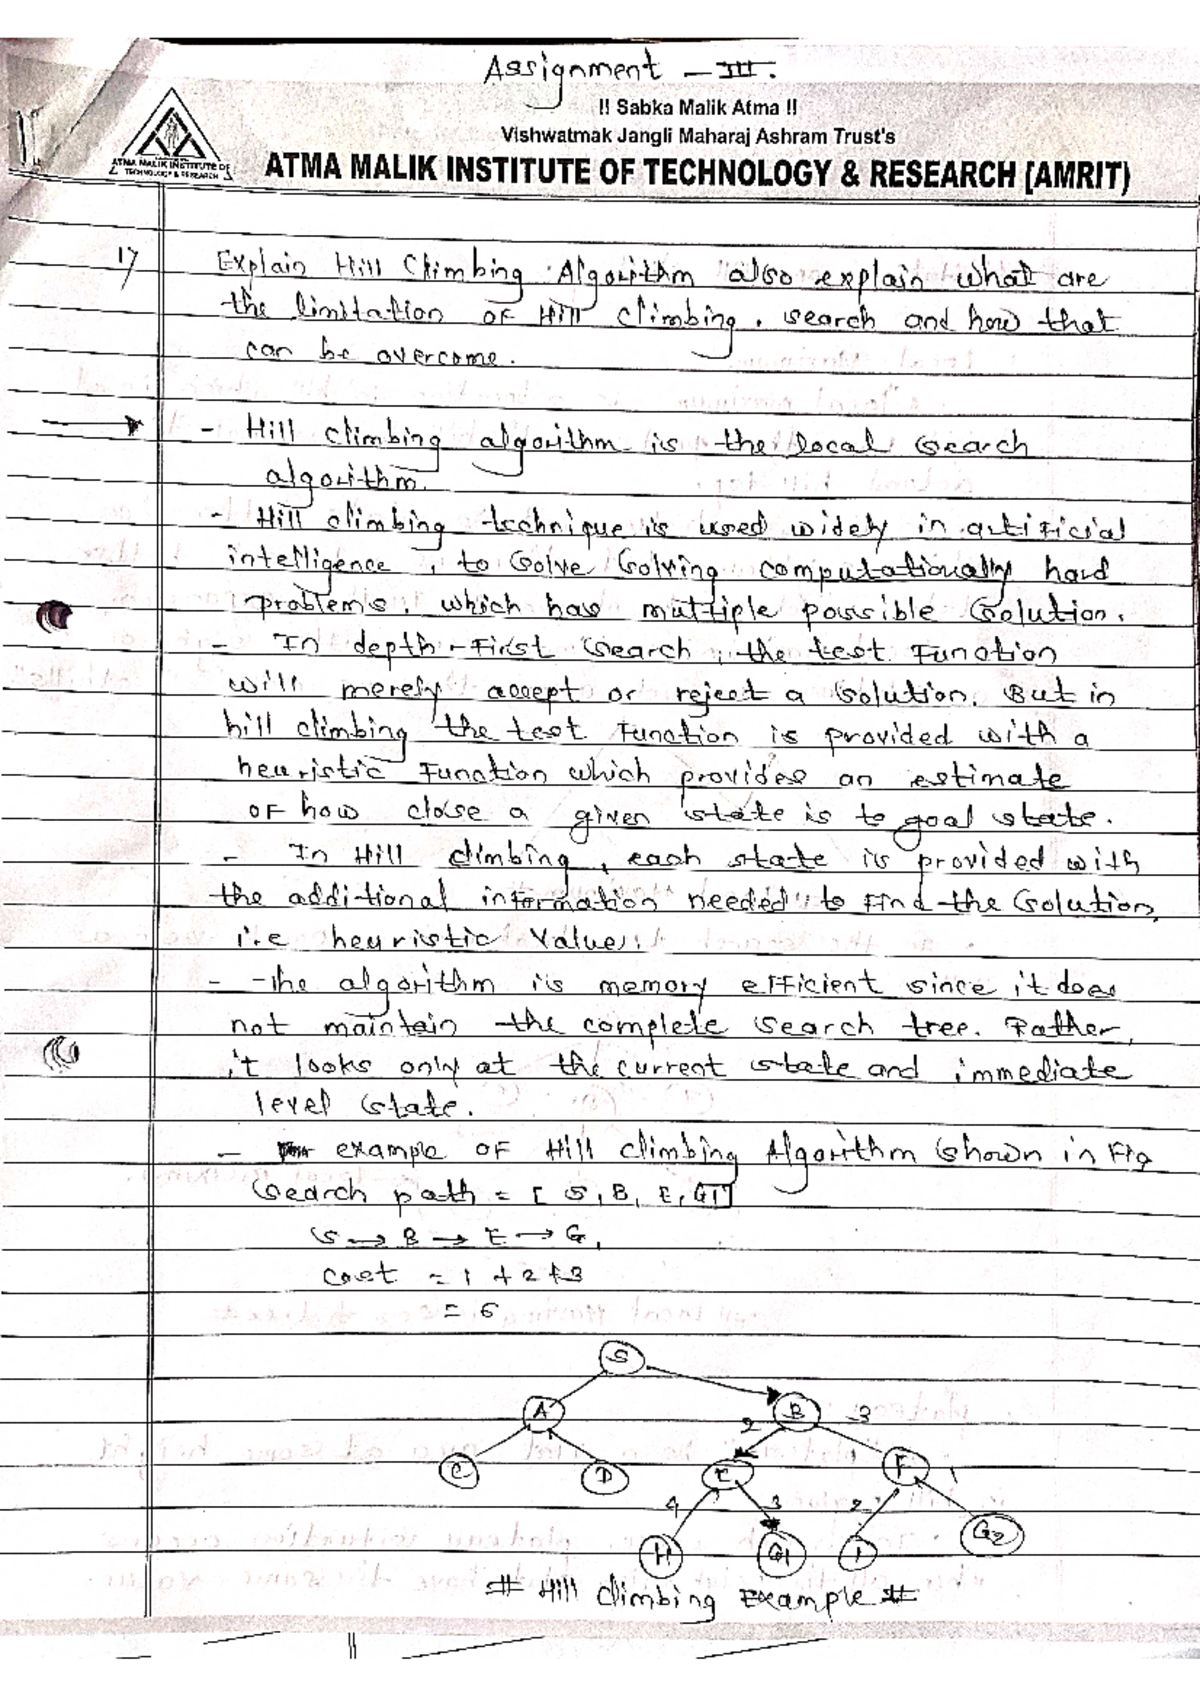 Assignment - III.
!! Sabka Malik Atma !!
Vishwatmak Jangli Maharaj Ashram Trust's
ATMA MALIK INSTITUTE OF TECHNOLOGY & RESEARCH [AMRIT]
ATMA MALIK INSTITUTE OF
TECHNOLOGY & RESEARCH
1) Explain Hill Climbing Algorithm also explain what are
the limitation of Hill climbing. search and how that
can be overcome.
→ - Hill climbing algorithm is the local search
algorithm.
- Hill climbing technique is used widely in artificial
intelligence, to solve solving computationally hard
problems. which has multiple possible solution.
- In depth-First search, the test Function
will merely accept or reject a solution. But in
hill climbing the test Function is provided with a
heuristic Function which provides an estimate
of how close a given state is to goal state.
- In Hill climbing, each state is provided with
the additional information needed to Find the solution,
i.e heuristic value.
- The algorithm is memory efficient since it does
not maintain the complete search tree. Rather,
it looks only at the current state and immediate
level state.
- example of Hill climbing Algorithm shown in Fig
search path = [ S, B, E, G1]
S → B → E → G,
cost = 1 + 2 + 3
= 6
S
A B
2 3
C D E F
1
4 3 2
H G1 I G2
# Hill climbing Example #